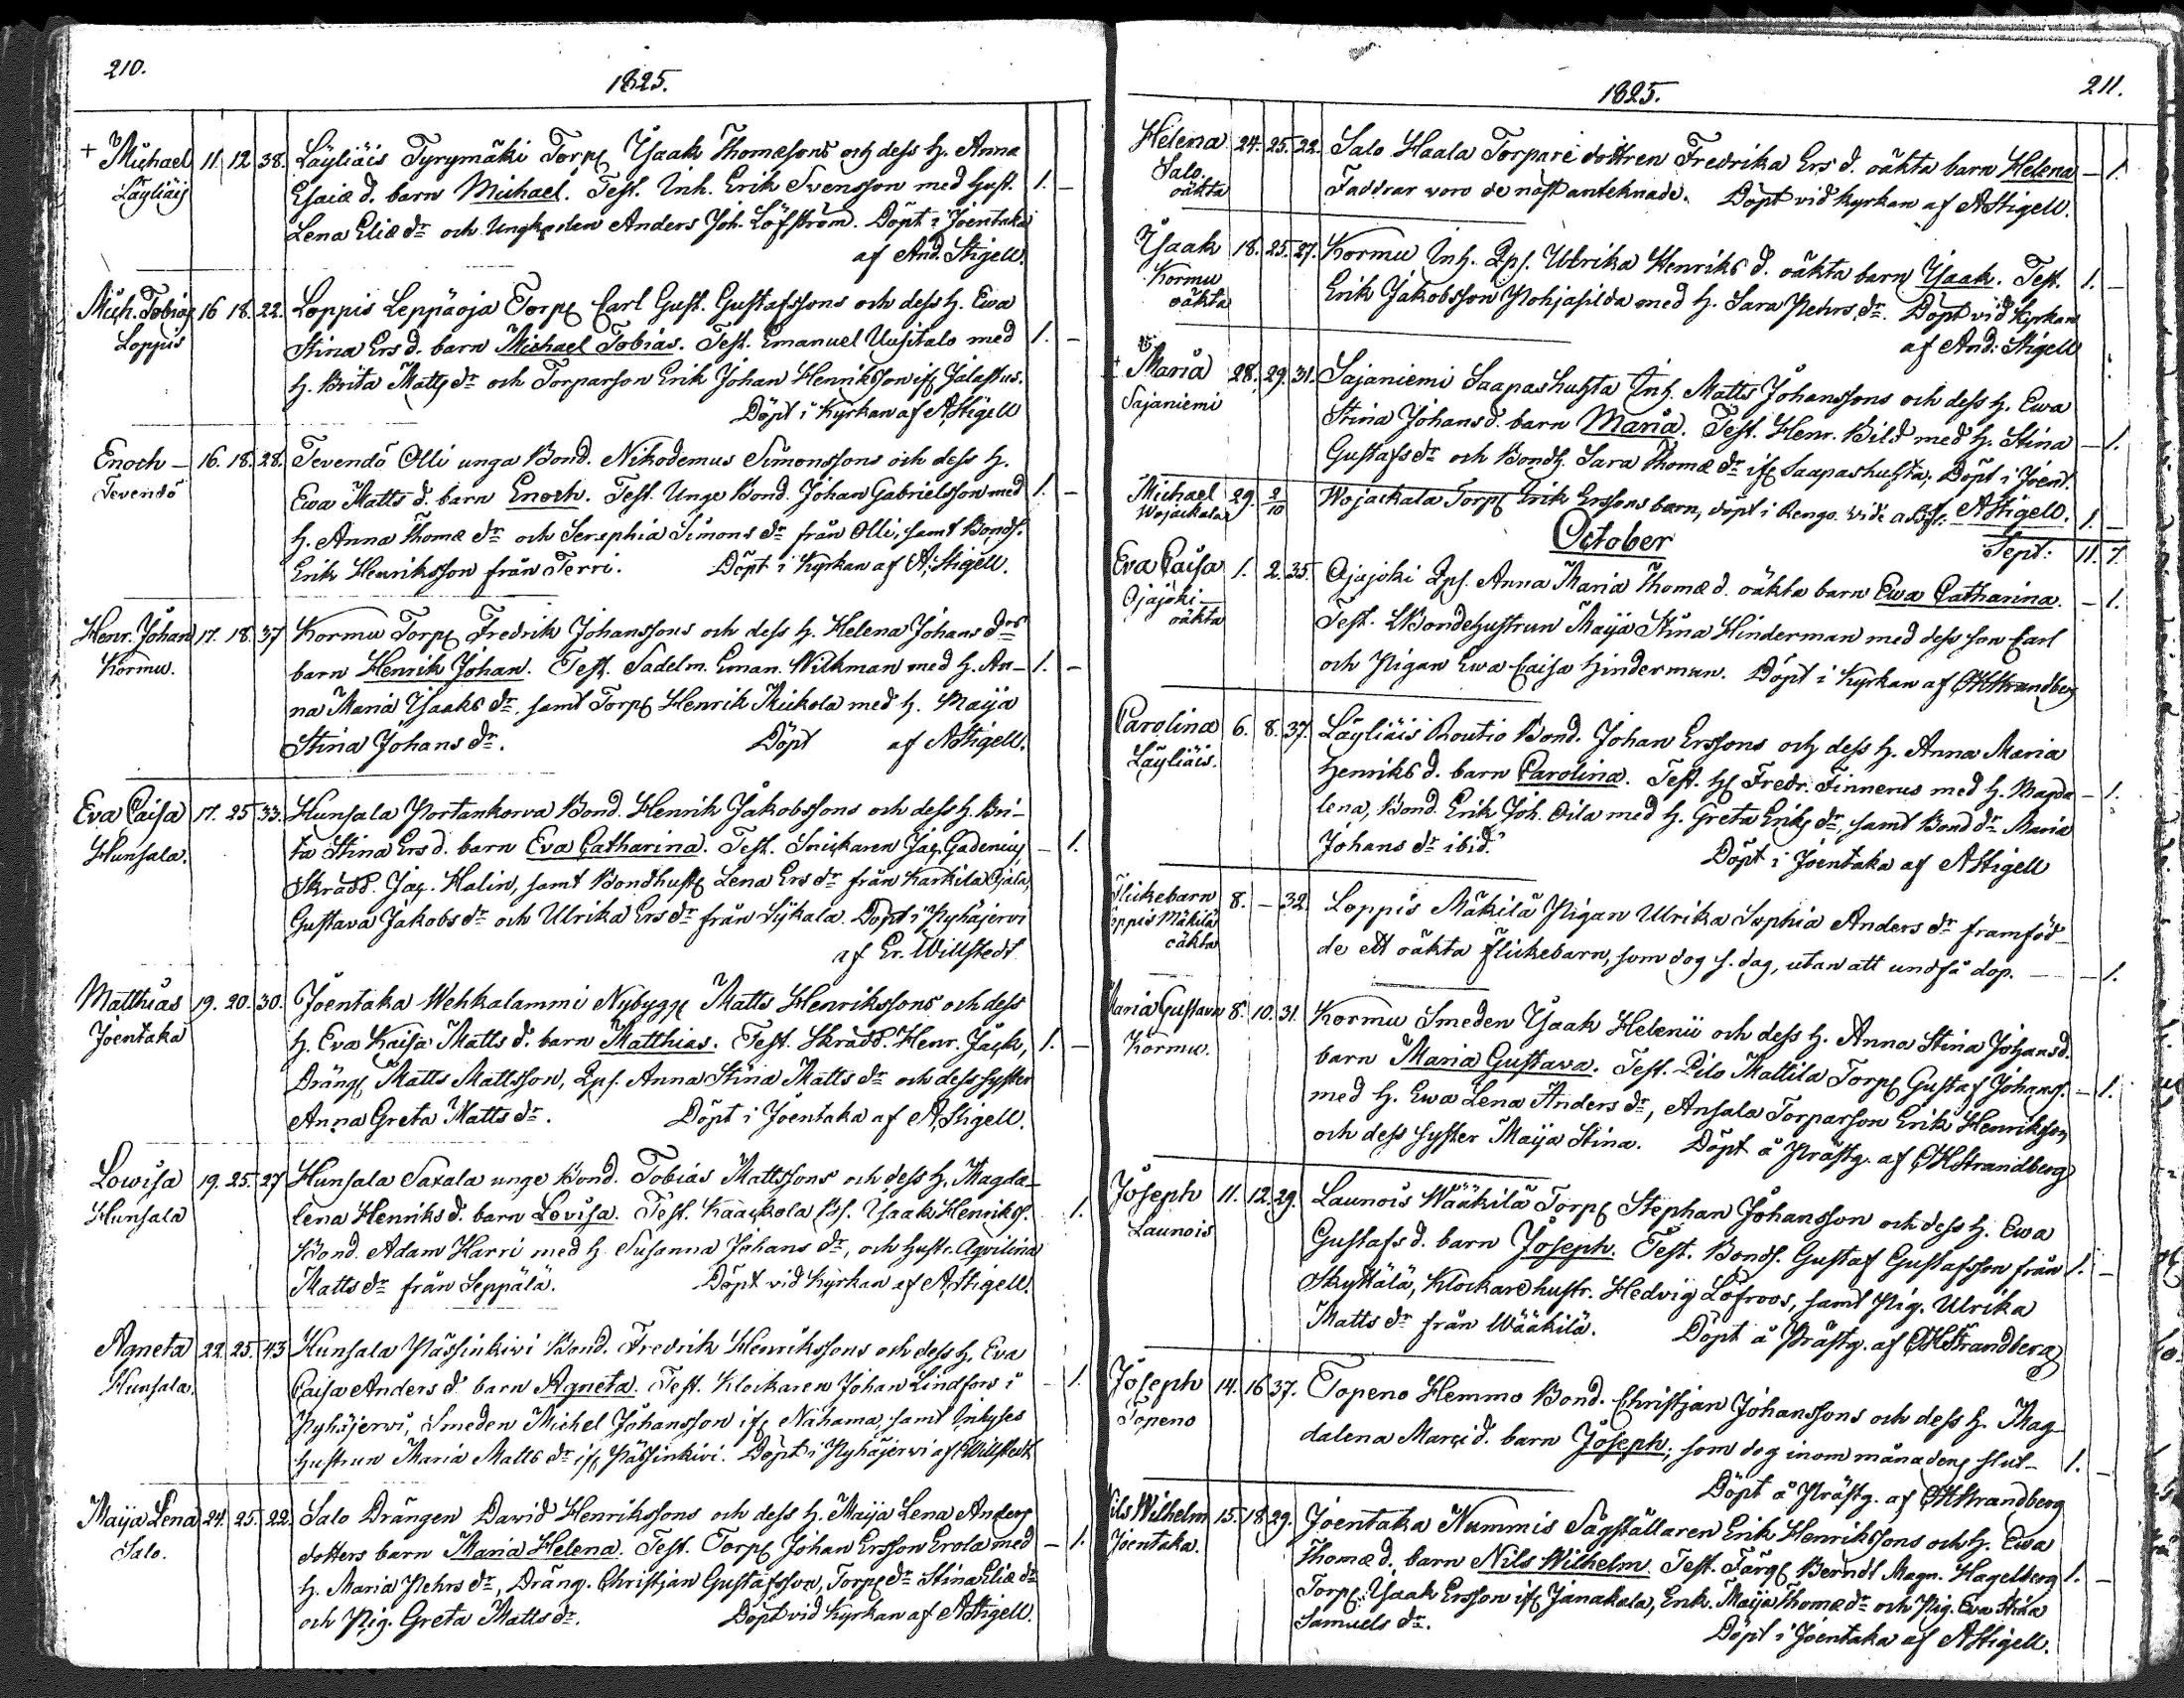 210.
1825.
+ Michael 11. 12 38. Läyliäis Tyrymäki Torp. Isaak Thomæsons och dess h. Anna
Läyliäis Esaiæ d. barn Michael. Test. Inh. Erik Svensson med hust. 1. –
Lena Eliæ dr och Ungkarlen Anders Joh. Löfström. Döpt i Joentaka
af And. Stigell.
Mich. Tobias 16 18. 22. Loppis Leppäoja Torp. Carl Gust. Gustafssons och dess h. Ewa
Loppis Stina Ers d. barn Michael Tobias. Test. Emanuel Uusitalo med 1. –
h. Brita Matts dr och Torparson Erik Johan Henriksson if. Jalassus.
Döpt i Kyrkan af AStigell
Enoch – 16. 18. 28. Tevendö Olli unga Bond. Nikodemus Simonssons och dess h.
Tevendö Ewa Matts d. barn Enoch. Test. Unge Bond. Johan Gabrielsson med 1. –
h. Anna Thomæ dr och Seraphia Simons dr från Olli, samt Bonds.
Erik Henriksson från Terri. Döpt i Kyrkan af A. Stigell.
Henr. Johan 17. 18. 37 Kormu Torp. Fredrik Johanssons och dess h. Helena Johans drs
Kormu. barn Henrik Johan. Test. Sadelm. Eman. Wilkman med h. An- 1. –
na Maria Isaaks dr, samt Torp. Henrik Mickola med h. Maija
Stina Johans dr. Döpt af AStigell.
Eva Caisa 17. 25 33. Hunsala Portankorva Bond. Henrik Jakobssons och dess h. Bri-
Hunsala. ta Stina Ers d. barn Eva Catharina. Test. Snickaren Jac. Gadenius, – 1.
Skrädd. Jac. Halin, samt Bondhust. Lena Ers dr från Karkila Ojala,
Gustava Jakobs dr och Ulrika Ers dr från Sykala. Döpt i Pyhäjervi
af Er. Willstedt
Matthias 19. 20. 30. Joentaka Wehkalammi Nybygg. Matts Henrikssons och dess
Joentaka h. Eva Kaisa Matts d. barn Matthias. Test. Skrädd. Henr. Jäck, 1. –
Dräng. Matts Mattsson, Qps. Anna Stina Matts dr och dess syster
Anna Greta Matts dr. Döpt i Joentaka af A. Stigell.
Lowisa 19. 25. 27 Hunsala Saxala unge Bond. Tobias Mattssons och dess h. Magda-
Hunsala lena Henriks d. barn Lovisa. Test. Kaackola Bs. Isaak Henrikss. 1.
Bond. Adam Harri med h. Susanna Johans dr, och hustr. Aqvilina
Matts dr från Seppälä. Döpt vid Kyrkan af AStigell.
Agneta 22. 25. 43 Hunsala Pässinkivi Bond. Fredrik Henrikssons och dess h. Eva
Hunsala. Caisa Anders d. barn Agneta. Test. Klockaren Johan Lindfors i – 1.
Pyhäjervi, Smeden Michel Johansson if. Nähama, samt Inhyses
hustrun Maria Matts dr if. Pässinkivi. Döpt i Pyhäjervi af EWillstedt
Maija Lena 24. 25. 22. Salo Drängen David Henrikssons och dess h. Maija Lena Anders
Salo. dotters barn Maria Helena. Test. Torp. Johan Ersson Erola med – 1.
h. Maria Pehrs dr, Dräng. Christjan Gustafsson, Torp. dr Stina Eliæ dr
och Pig. Greta Matts dr. Döpt vid Kyrkan af AStigell.
1825.
211.
Helena 24. 25. 22. Salo Haala Torpare dottren Fredrika Ers d. oäkta barn Helena – 1.
Salo. oäkta Faddrar voro de näst antecknade. Döpt vid Kyrkan af AStigell.
Isaak 18. 25. 27. Kormu Inh. Qps. Ulrika Henriks d. oäkta barn Isaak. Test. 1. –
Kormu oäkta Erik Jakobsson Pohjasilda med h. Sara Pehrs dr. Döpt vid Kyrkan
af And: Stigell
+ Maria 28. 29. 31. Sajaniemi Saapashuhta Inh. Matts Johanssons och dess h. Ewa
Sajaniemi Stina Johans d. barn Maria. Test. Henr. Bild med h. Stina – 1.
Gustafs dr och Bondh. Sara Thomæ dr if. Saapashuhta. Döpt i Joent.
AStigell.
Michael 29. 2/10 Wojackala Torp. Erik Erssons barn, döpt i Rengo. vide 1. –
Wojackala
Sept: 11. 7.
October
Eva Caisa 1. 2. 35. Ojajoki Qps. Anna Maria Thomæ d. oäkta barn Ewa Catharina. – 1.
Ojajoki – oäkta Test. Bondehustrun Maija Stina Hinderman med dess son Carl
och Pigan Ewa Caisa Hinderman. Döpt i Kyrkan af Strandberg
Carolina 6. 8. 37. Läyliäis Routio Bond. Johan Erssons och dess h. Anna Maria
Läyliäis. Henriks d. barn Carolina. Test. H. Fredr. Finnerus med h. Magda – 1.
lena, Bond. Erik Joh. Oila med h. Greta Eriks dr, samt Bond dr Maria
Johans dr ibid. Döpt i Joentaka af AStigell
Flickebarn 8. – 32. Loppis Mäkilä Pigan Ulrika Sophia Anders dr framföd-
oppis Mäkilä oäkta de ett oäkta flickebarn, som dog s. dag, utan att undfå dop. – – 1.
Maria Gustava 8. 10. 31. Kormu Smeden Isaak Helenii och dess h. Anna Stina Johans d.
Kormu. barn Maria Gustava. Test. Pilo Mattila Torp. Gustaf Johanss. – 1.
med h. Ewa Lena Anders dr, Ansala Torparson Erik Henriksson
och dess syster Maija Stina. Döpt å Prästg. af Strandberg
Joseph 11. 12. 29. Launois Wääkilä Torp. Stephan Johansson och dess h. Ewa
Launois Gustafs d. barn Joseph. Test. Bonds. Gustaf Gustafsson från 1. –
Skyttälä, Klockarehustr. Hedvig Löfroos, samt Pig. Ulrika
Matts dr från Wääkilä. Döpt å Prästg. af Strandberg
Joseph 14. 16 37. Topeno Hemmo Bond. Christjan Johanssons och dess h. Mag-
Topeno dalena Marci d. barn Joseph, som dog inom månadens slut – 1. –
Döpt å Prästg. af Strandberg
Nils Wilhelm 15. 18. 29. Joentaka Nummis Sågställaren Erik Henrikssons och h. Ewa
Joentaka. Thomæ d. barn Nils Wilhelm. Test. Färg. Berndt Magn. Hagelberg 1. –
Torp. Isaak Ersson if. Janakala, Enk. Maija Thomæ dr och Pig. Eva Stina
Samuels dr. Döpt i Joentaka af AStigell.